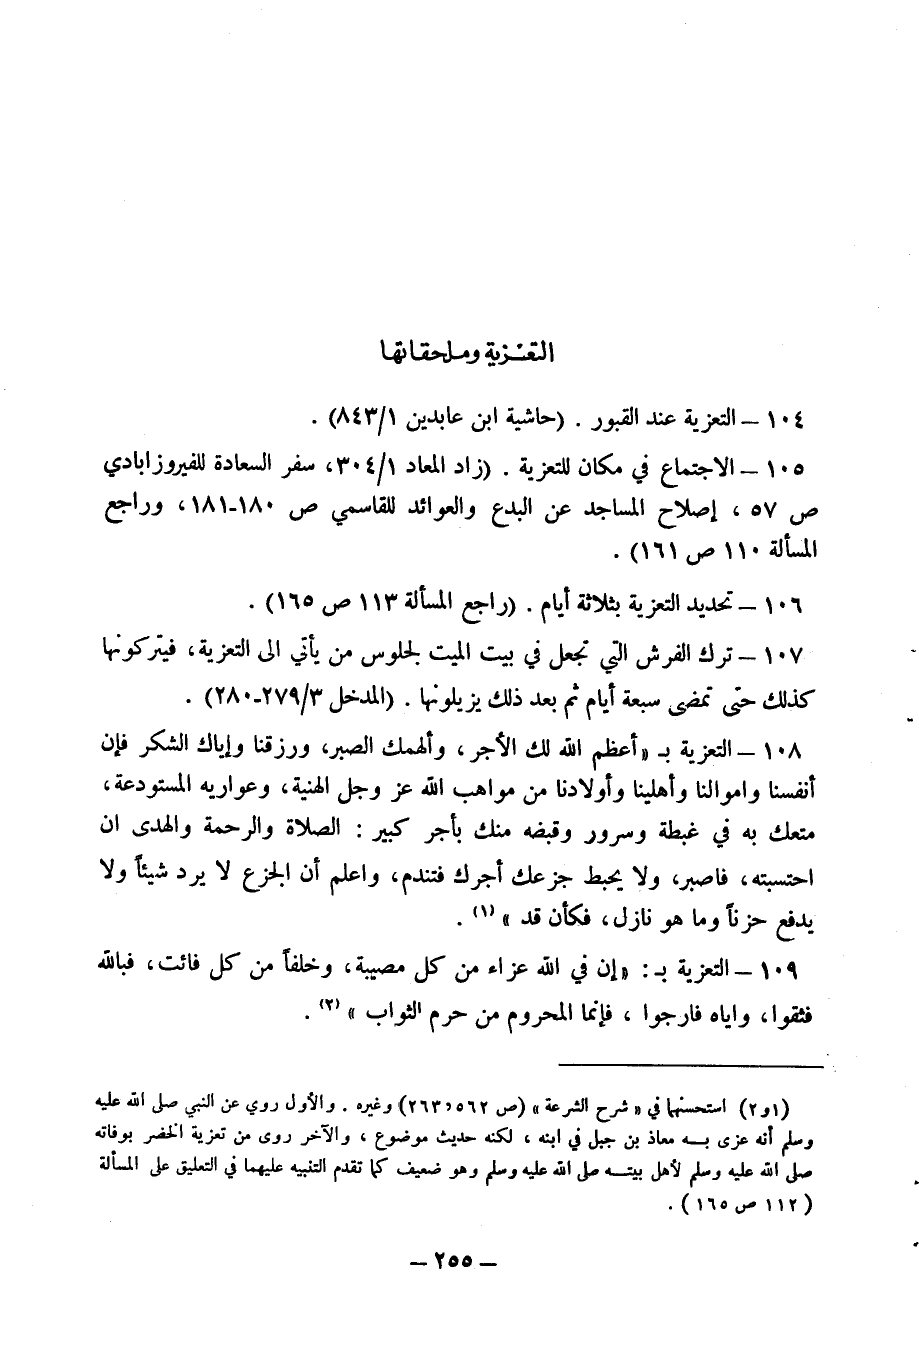 التعـزية وملحقاتها
١٠٤ – التعزية عند القبور . (حاشية ابن عابدين ٨٤٣/١) .
١٠٥ – الاجتماع في مكان للتعزية . (زاد المعاد ٣٠٤/١، سفر السعادة للفيروزابادي
ص ٥٧ ، إصلاح المساجد عن البدع والعوائد للقاسمي ص ١٨٠-١٨١، وراجع
المسألة ١١٠ ص ١٦١) .
١٠٦ – تحديد التعزية بثلاثة أيام . (راجع المسألة ١١٣ ص ١٦٥) .
١٠٧ – ترك الفرش التي تجعل في بيت الميت لجلوس من يأتي الى التعزية، فيتركونها
كذلك حتى تمضى سبعة أيام ثم بعد ذلك يزيلونها . (المدخل ٢٧٩/٣-٢٨٠) .
١٠٨ – التعزية بـ «أعظم الله لك الأجر، وألهمك الصبر، ورزقنا وإياك الشكر فإن
أنفسنا واموالنا وأهلينا وأولادنا من مواهب الله عز وجل الهنية، وعواريه المستودعة،
متعك به في غبطة وسرور وقبضه منك بأجر كبير : الصلاة والرحمة والهدى ان
احتسبته، فاصبر، ولا يحبط جزعك أجرك فتندم، واعلم أن الجزع لا يرد شيئاً ولا
يدفع حزناً وما هو نازل، فكأن قد » (١) .
١٠٩ – التعزية بـ: «إن في الله عزاء من كل مصيبة، وخلفاً من كل فائت، فبالله
فثقوا، واياه فارجوا ، فإنما المحروم من حرم الثواب » (٢) .
(١و٢) استحسنها في « شرح الشرعة» (ص ٥٦٢و٢٦٣) وغيره . والأول روي عن النبي صلى الله عليه
وسلم أنه عزى بـه معاذ بن جبل في ابنه ، لكنه حديث موضوع ، والآخر روى من تعزية الخضر بوفاته
صلى الله عليه وسلم لأهل بيتـه صلى الله عليه وسلم وهو ضعيف كما تقدم التنبيه عليهما في التعليق على المسألة
(١١٢ ص ١٦٥) .
– ٢٥٥ –